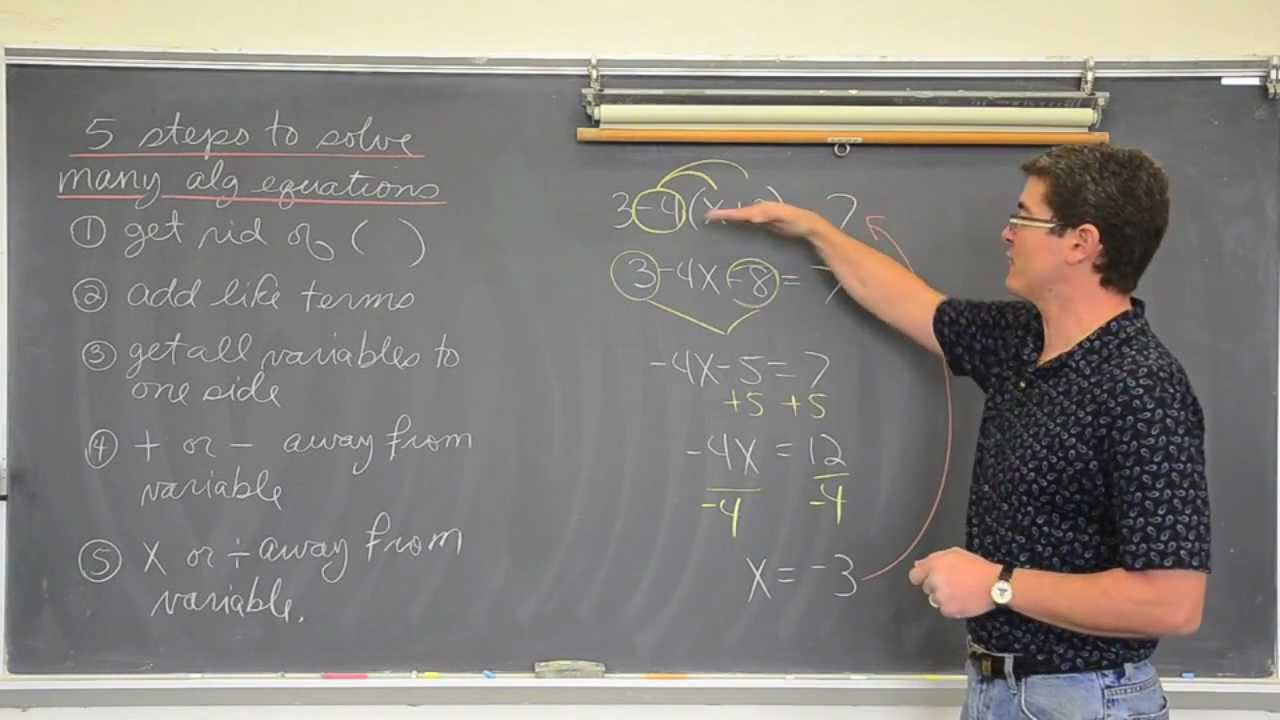 5 steps to solve
many alg equations
① get rid of ( )
② add like terms
③ get all variables to
one side
④ + or - away from
variable
⑤ X or ÷ away from
variable.
3 -4(x+ 7
3 -4x -8 = 7
-4x -5 = 7
+5 +5
-4x = 12
-4 -4
x = -3